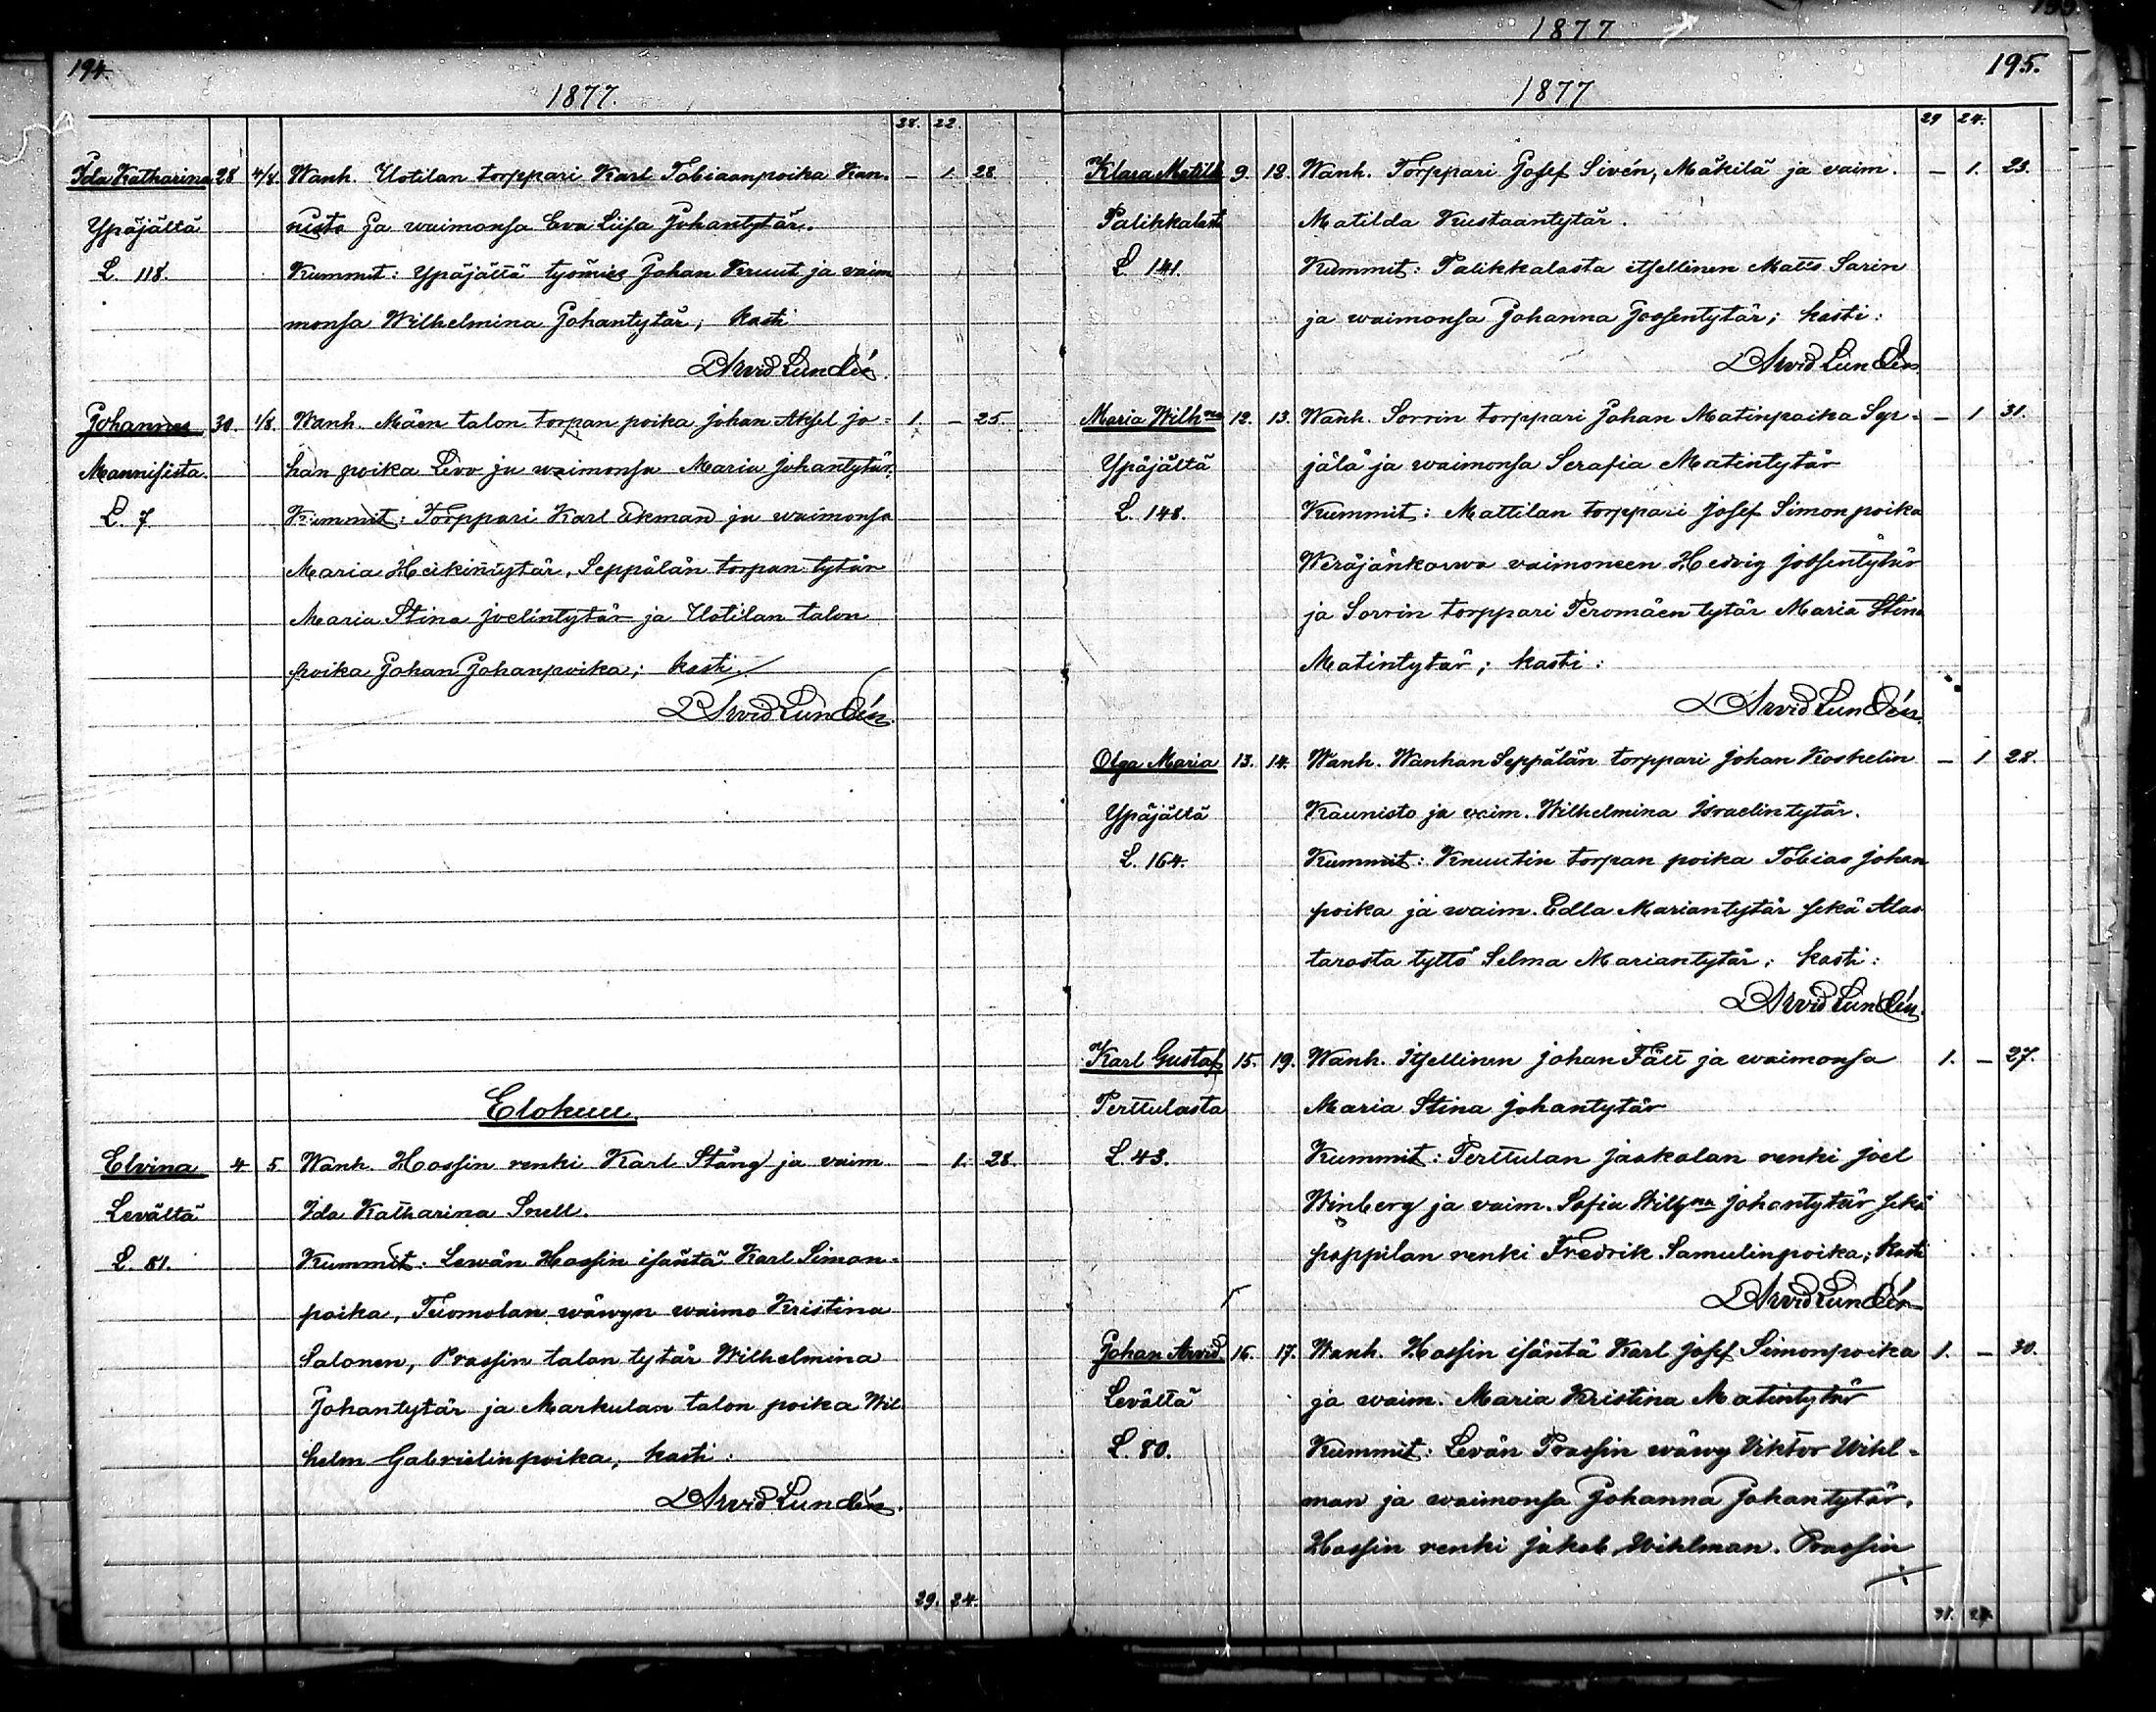 194.
1877.
38. 22.
Ida Katharina 28 4/8. Wanh. Uotilan torppari Karl Tobiaanpoika Kan- — 1 28
Ypäjältä nisto ja waimonsa Eva Liisa Johantytär.
L. 118. Kummit: Ypäjältä työmies Johan Knuut ja vaim
monsa Wilhelmina Johantytär; kasti
Arvid Lundén.
Johannes 30. 1/8 Wanh. Mäen talon torpan poika Johan Aksel Jo= 1. — 25.
Mannisista. han poika Levo ja waimonsa Maria Johantytär.
L. 7 Kummit: Torppari Karl Ekman ja waimonsa
Maria Heikintytär, Seppälän torpan tytär
Maria Stina Joelintytär ja Uotilan talon
poika Johan Johanpoika; kasti
Arvid Lundén.
Elokuu.
Elvina 4 5 Wanh. Hossin renki Karl Stång ja vaim — 1. 28.
Levältä Ida Katharina Snell.
L. 81. Kummit: Lewän Hossin isäntä Karl Simon=
poika, Tuomolan wäwyn waimo Kristina
Salonen, Prassin talon tytär Wilhelmina
Johantytär ja Markulan talon poika Wil
helm Gabrielinpoika; kasti:
Arvid Lundén.
39. 24.
1877
195.
1877
29 24.
Klara Matild 9. 12. Wanh. Torppari Josef Sivén, Mäkilä ja vaim. — 1. 23.
Palikkalast Matilda Kustaantytär.
L. 141. Kummit: Palikkalasta itsellinen Matts Sarin
ja waimonsa Johanna Joosentytär; kasti:
Arvid Lundén
Maria Wilhna 12. 13. Wanh. Sorrin torppari Johan Matinpoika Syr- — 1 31.
Ypäjältä jälä ja waimonsa Serafia Matintytär
L. 148. Kummit: Mattilan torppari Josef Simonpoika
Weräjänkorwa vaimoneen Hedvig Joosentytär
ja Sorrin torppari Peromäen tytär Maria Stina
Matintytär; kasti:
Arvid Lundén.
Olga Maria 13. 14. Wanh. Wanhan Seppälän torppari Johan Koskelin — 1 28.
Ypäjältä Kaunisto ja vaim. Wilhelmina Israelintytär.
L. 164. Kummit: Knuutin torpan poika Tobias Johan
poika ja waim. Edla Mariantytär sekä Alas
tarosta tyttö Selma Mariantytär; kasti:
Arvid Lundén.
Karl Gustaf 15. 19. Wanh. Itsellinen Johan Fält ja waimonsa 1. — 27.
Perttulasta Maria Stina Johantytär
L. 43. Kummit: Perttulan Jaakolan renki Joel
Winberg ja vaim. Sofia Wilhna Johantytär sekä
pappilan renki Fredrik Samulinpoika; kasti
Arvid Lundén
Johan Arvid 16. 17. Wanh. Hossin isäntä Karl Josef Simonpoika 1. — 30.
Levältä ja waim. Maria Kristina Matintytär
L. 80. Kummit: Levän Prassin wäwy Viktor Wihl-
man ja waimonsa Johanna Johantytär.
Hossin renki Jakob Wihlman. Prassin
31. 27.